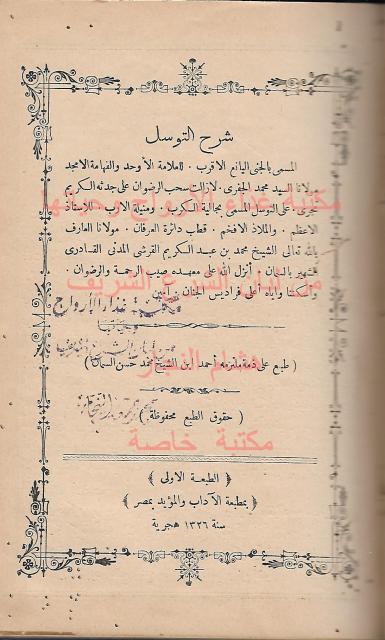 شرح التوسل
المسمى بالجنى اليانع الاقرب . للعلامة الأوحد والفهامة الامجد
مولانا السيد محمد الجفرى . لا زالت سحب الرضوان على جدثه الكريم
تجرى . على التوسل المسمى مجالية الكرب . ومنيلة الارب . للاستاذ
الاعظم . والملاذ الافخم . قطب دائرة العرفان . مولانا العارف
بالله تعالى الشيخ محمد بن عبد الكريم القرشى المدنى القادرى
الشهير بالسمان . أنزل الله على معهده صيب الرحمة والرضوان .
وأسكننا واياه أعلى فراديس الجنان . آمين
مكتبة غذاء الأرواح
من لبان الشرع الشريف
هشم النجار
مكتبة خاصة
( طبع على ذمة ملتزمه أحمد ابن الشيخ محمد حسن السمان )
( حقوق الطبع محفوظة )
( الطبعة الاولى )
( بمطبعة الآداب والمؤيد بمصر )
سنة ١٣٢٦ هجرية